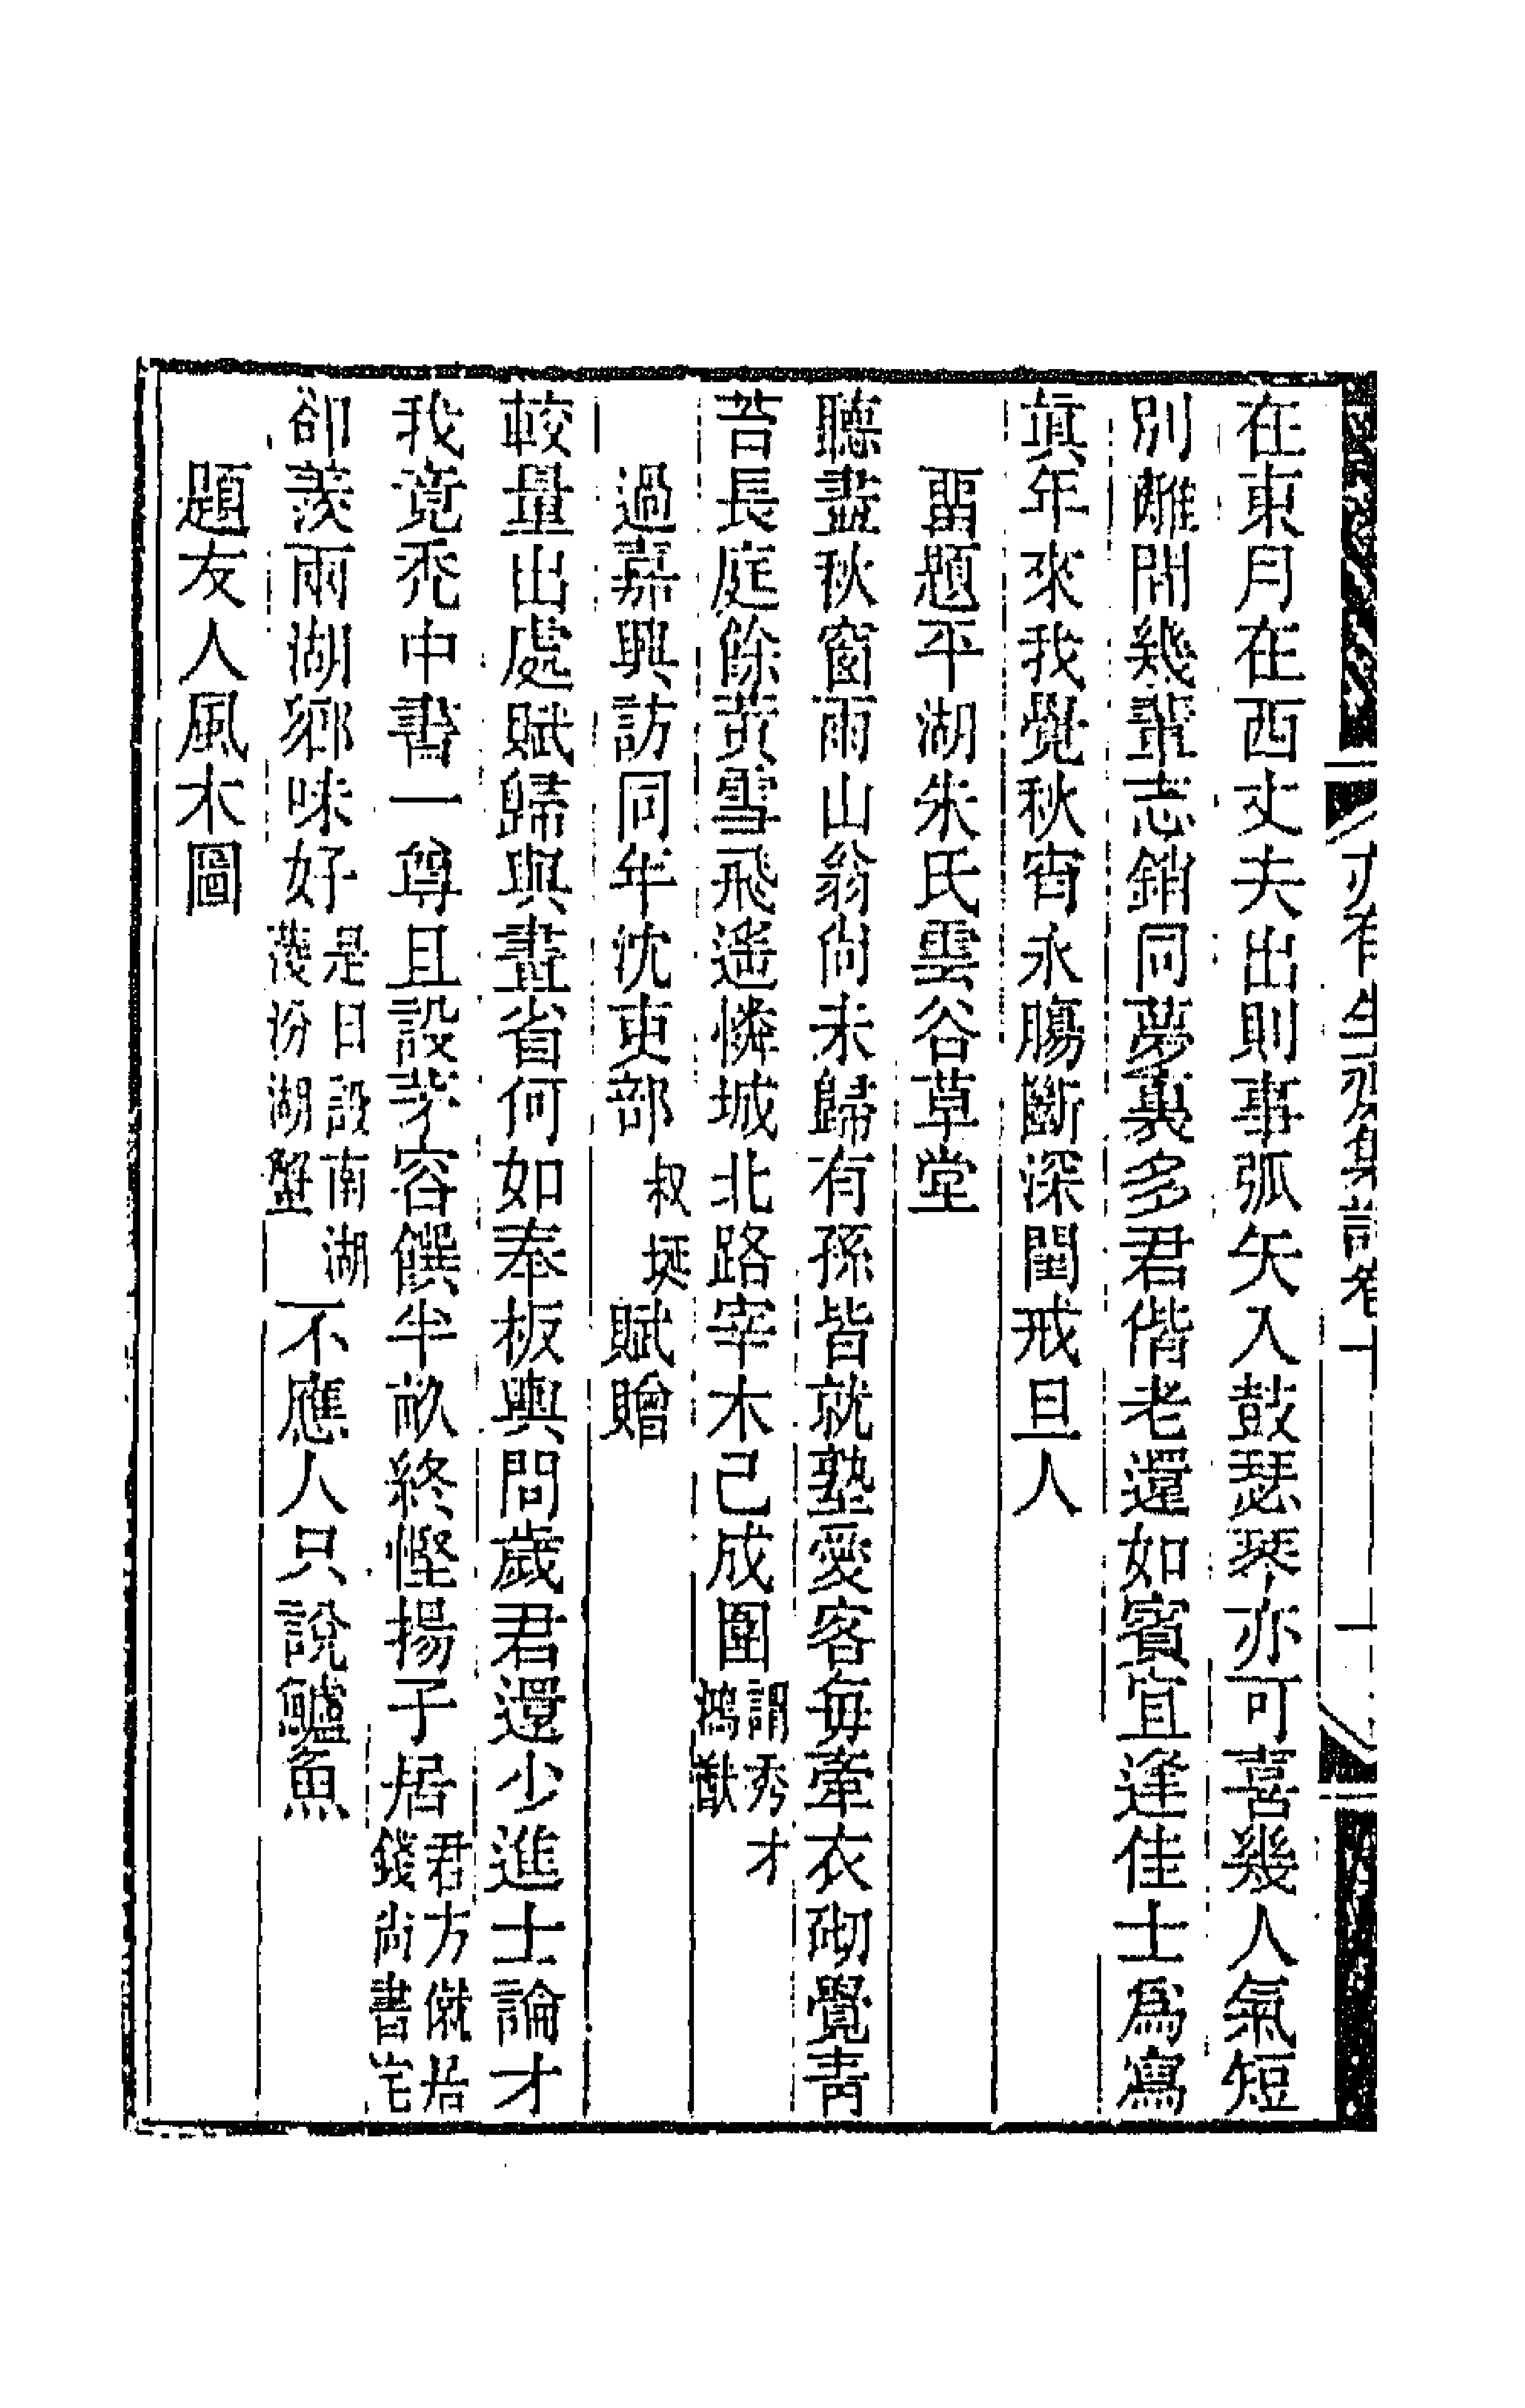 亦有生齋集詩卷十
在東月在西丈夫出則事弧矢入鼓瑟琴亦可喜幾人氣短
別離間幾輩志銷同夢裏多君偕老還如賓宜逢佳士爲寫
眞年來我覺秋宵永腸斷深閨戒旦人
畱題平湖朱氏雲谷草堂
聽盡秋窗雨山翁尙未歸有孫皆就塾愛客每牽衣砌覺靑
苔長庭餘黃雪飛遙憐城北路宰木已成圍謂秀才鴻猷
過嘉興訪同年沈吏部叔埏賦贈
較量出處賦歸與晝省何如奉板輿問歲君還少進士論才
我竟禿中書一尊且設茅容饌半畝終慳揚子居君方僦居錢尙書宅
卻羨兩湖鄉味好是日設南湖菱汾湖蟹不應人只說鱸魚
題友人風木圖